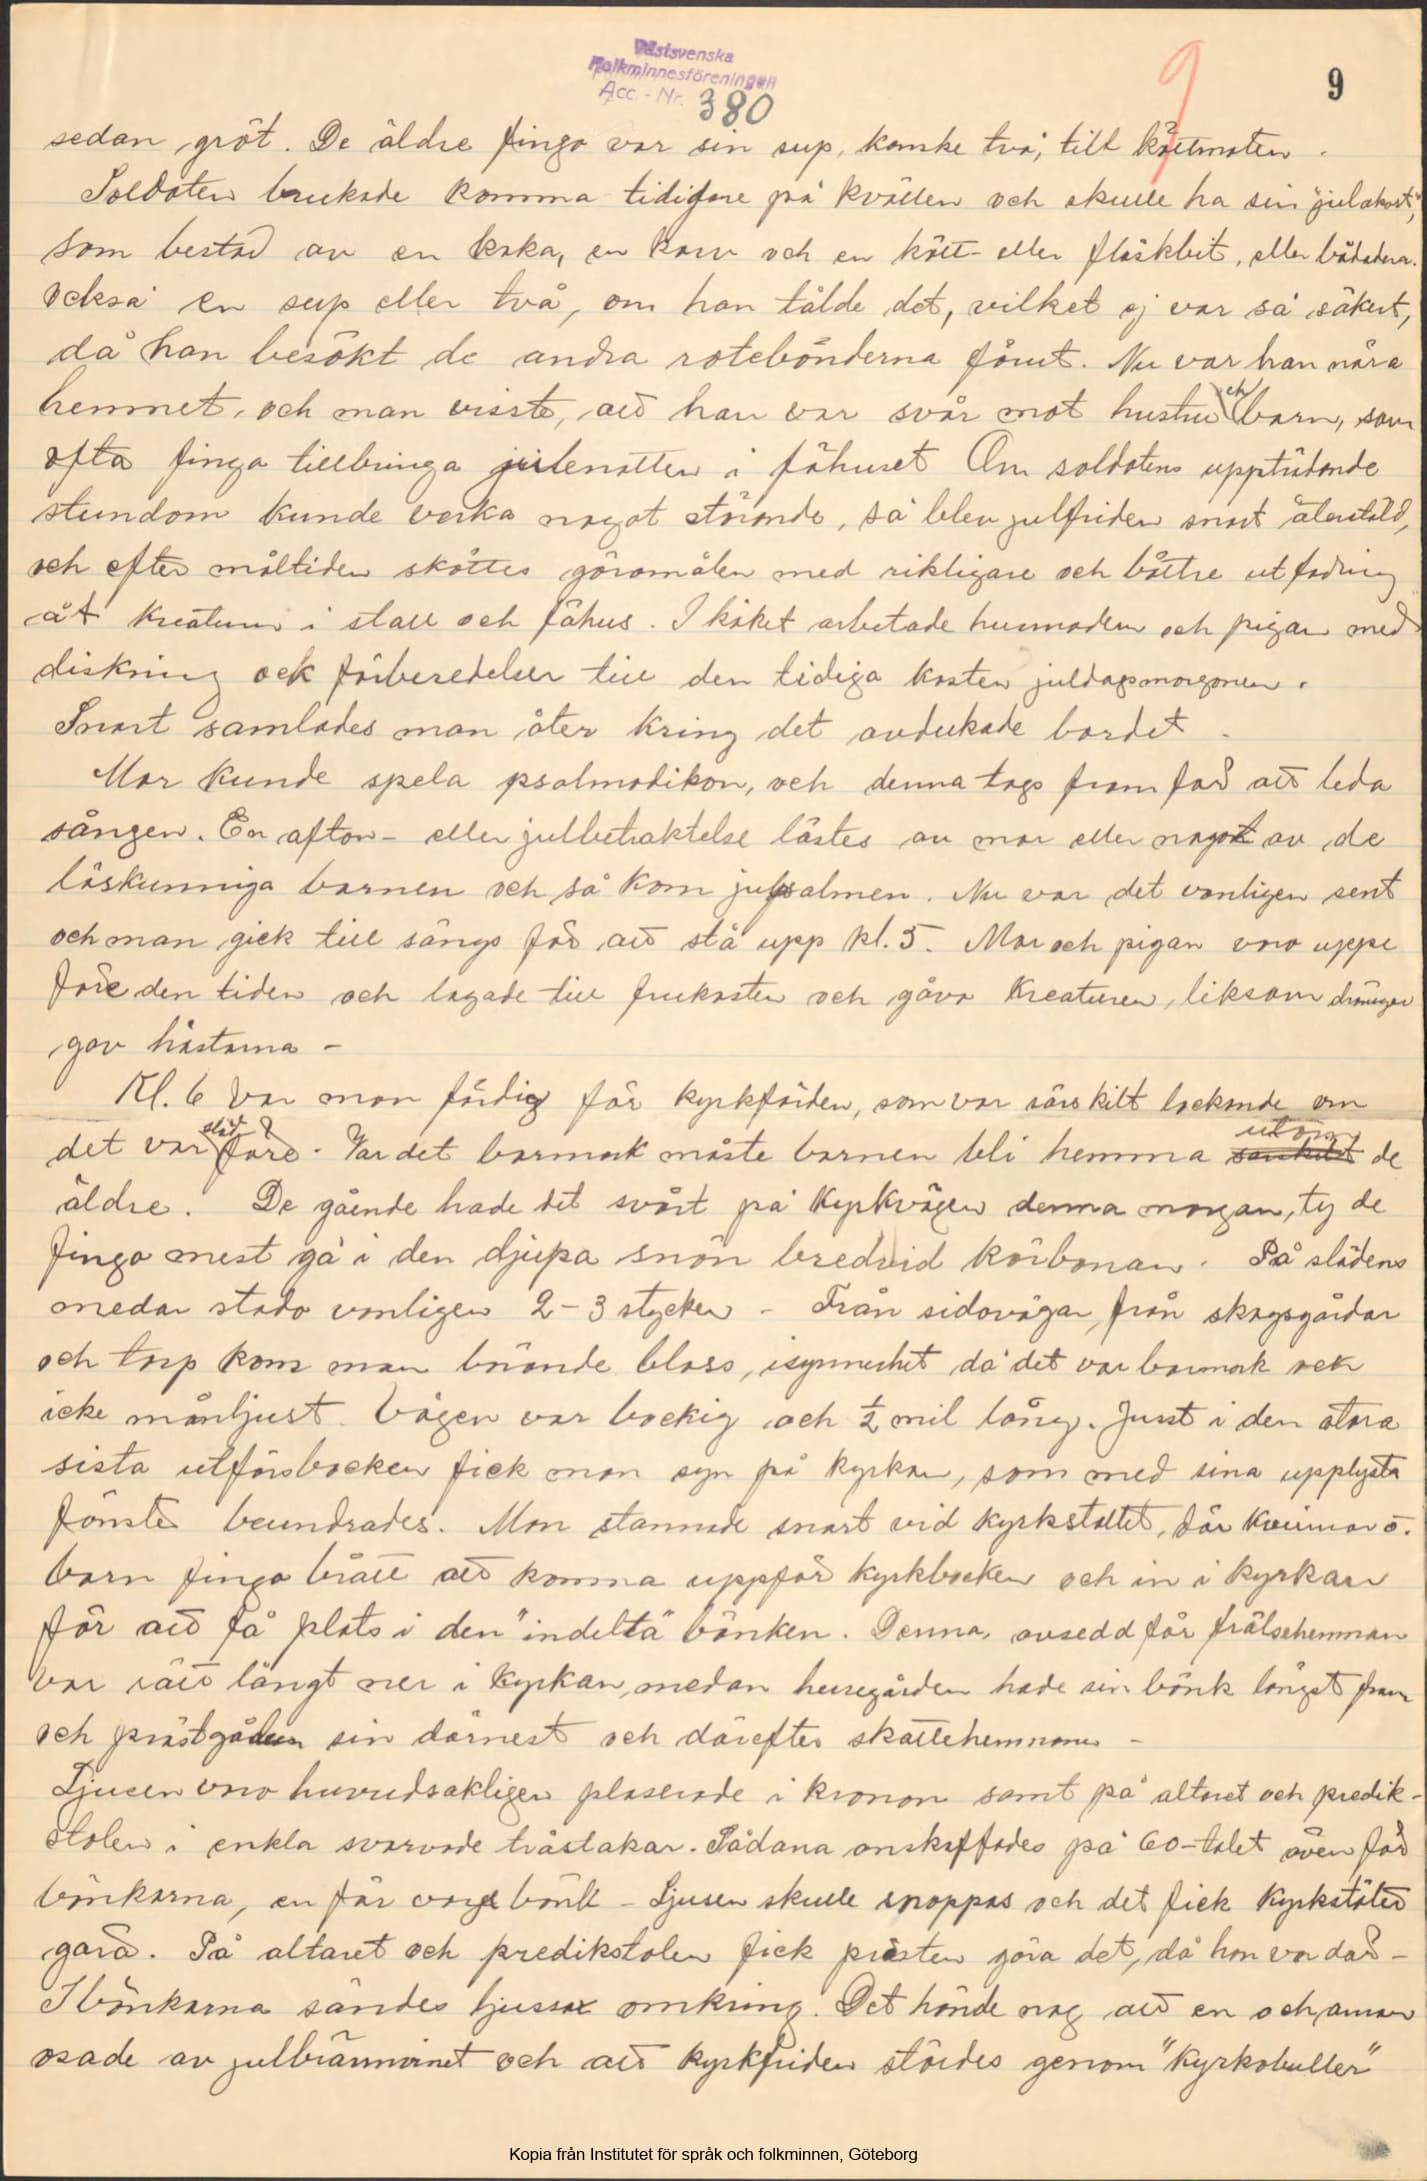 Västsvenska
Folkminnesföreningen
Acc. - Nr. 380
9
9
sedan gröt. De äldre fingo var sin sup, kanske två, till köttmaten.
Soldaten brukade komma tidigare på kvällen och skulle ha sin "julakost",
som bestod av en kaka, en korv och en kött- eller fläskbit, eller bådadera.
också en sup eller två, om han tålde det, vilket ej var så säkert,
då han besökt de andra rotebönderna förut. Nu var han nära
hemmet, och man visste, att han var svår mot hustru och barn, som
ofta fingo tillbringa julenatten i fähuset Om soldatens uppträdande
stundom kunde verka något störande, så blev julfriden snart återställd,
och efter måltiden sköttes göromålen med rikligare och bättre utfodring
åt kreaturen i stall och fähus. I köket arbetade husmodern och pigan med
diskning och förberedelser till den tidiga kosten juldagsmorgonen.
Snart samlades man åter kring det avdukade bordet.
Mor kunde spela psalmodikon, och denna togs fram för att leda
sången. En afton- eller julbetraktelse lästes av mor eller något av de
läskunniga barnen och så kom julpsalmen. Nu var det vanligen sent
och man gick till sängs för att stå upp kl. 5. Mor och pigan voro uppe
före den tiden och lagade till frukosten och gåvo kreaturen, liksom drängen
gav hästarna –
Kl. 6 var man färdig för kyrkfärden, som var särskilt lockande om
det var slädföre. Var det barmark måste barnen bli hemma utom de
äldre. De gående hade det svårt på kyrkvägen denna morgon, ty de
fingo mest gå i den djupa snön bredvid körbanan. På slädens
medar stodo vanligen 2–3 stycken – Från sidovägar, från skogsgårdar
och torp kom man bärande bloss, isynnerhet då det var barmark och
icke månljust. Vägen var backig och ½ mil lång. Just i den stora
sista utförsbacken fick man syn på kyrkan, som med sina upplysta
fönster beundrades. Man stannade snart vid kyrkstallet, där kvinnor o.
barn fingo brått att komma uppför kyrkbacken och in i kyrkan
för att få plats i den "indelta" bänken. Denna, avsedd för frälsehemman
var rätt långt ner i kyrkan, medan herregården hade sin bänk längst fram
och prästgården sin därnest och därefter skattehemmanen –
Ljusen voro huvudsakligen placerade i kronon samt på altaret och predik-
stolen i enkla svarvade trästakar. Sådana anskaffades på 60-talet även för
bänkarna, en för varje bänk – Ljusen skulle snoppas och det fick kyrkstöten
göra. På altaret och predikstolen fick prästen göra det, då han var där –
I bänkarna sändes ljussax omkring. Det hände nog att en och annan
osade av julbrännvinet och att kyrkfriden stördes genom "kyrkobuller"
Kopia från Institutet för språk och folkminnen, Göteborg